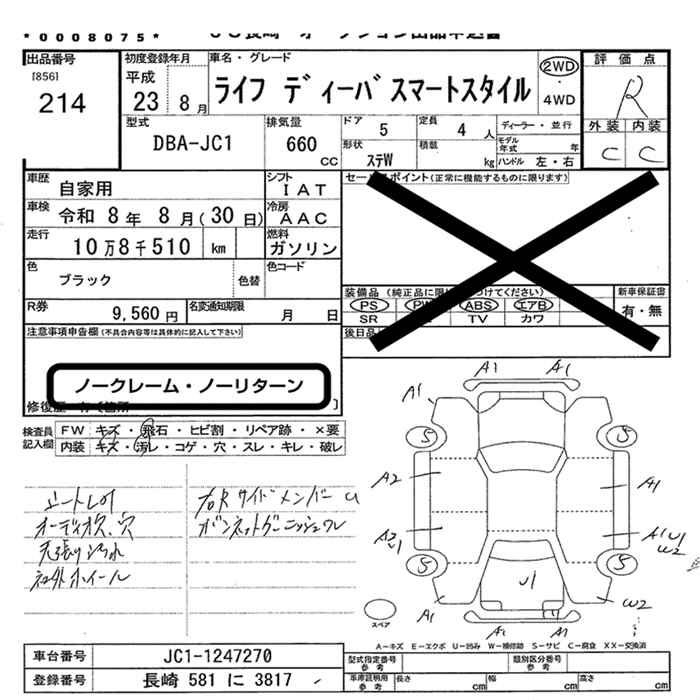 *0008075*
出品番号
[856]
214
初度登録年月
平成
23 8月
車名・グレード
ライフ ディーバ スマートスタイル
2WD
・
4WD
評価点
R
外装 内装
C C
型式
DBA-JC1
排気量
660
CC
ドア
5
定員
4 人
ディーラー・並行
形状
ステW
積載
kg
モデル年式
年
ハンドル 左・右
車歴
自家用
シフト
IAT
車検
令和 8年 8月(30日)
冷房
AAC
走行
10万8千510 km
燃料
ガソリン
色
ブラック
色替
色コード
R券
9,560 円
名変通知期限
月 日
(正常に機能するものに限ります)
装備品
PS
ABS
エアB
SR
TV カワ
新車保証書
有・無
後日品
注意事項申告欄(不具合内容等は具体的に記入して下さい)
ノークレーム・ノーリターン
検査員
記入欄
FW キズ・飛石・ヒビ割・リペア跡・×要
内装 キズ・汚レ・コゲ・穴・スレ・キレ・破レ
シートレハ
オーディオ欠、穴
天張リ汚れ
社外ホイール
右Rサイドメンバー U
ボンネットガーニッシュワレ
A1 A1
A1
S S
A2 A1
A2
U1
A1 U1
W2
S S
U1
A1 W2
A2 A1
スペア
A-キズ E-エクボ U-凹み W-補修跡 S-サビ C-腐食 XX-交換済
車台番号
JC1-1247270
登録番号
長崎 581 に 3817
型式指定番号
参考
類別区分番号
参考
車庫証明用
参考
長さ
cm
幅
cm
高さ
cm